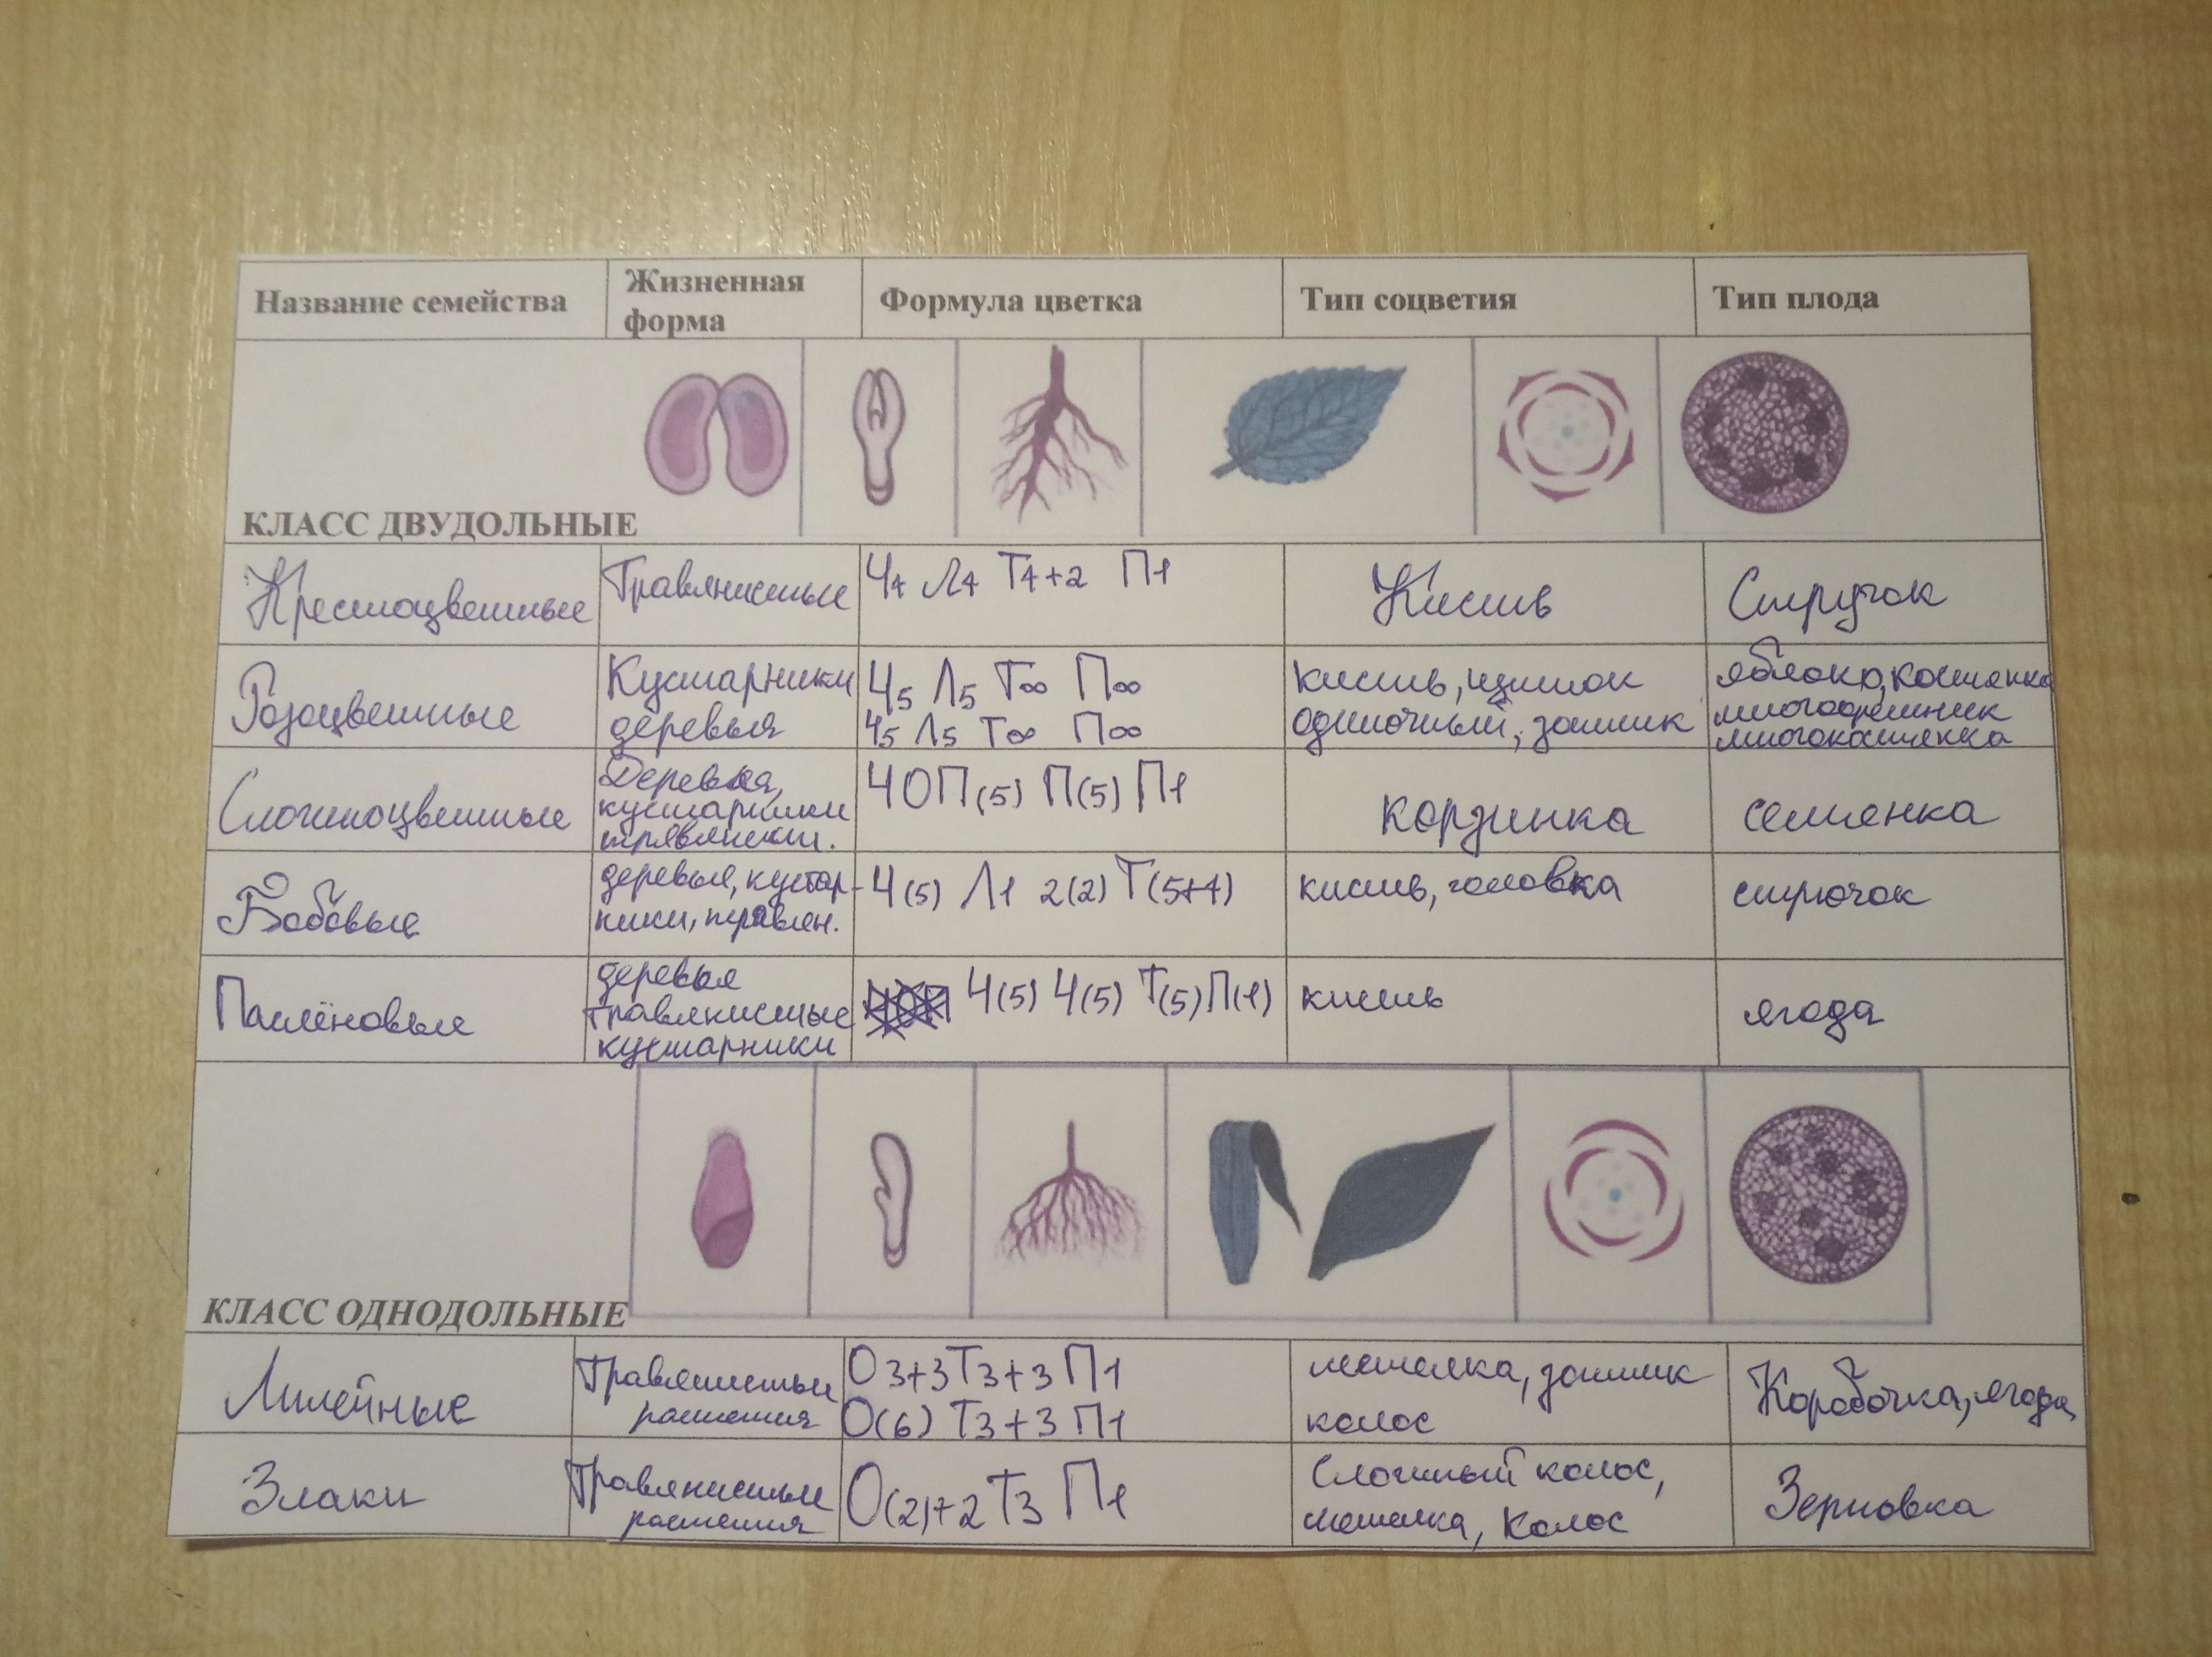 Название семейства
Жизненная
форма
Формула цветка
Тип соцветия
Тип плода
КЛАСС ДВУДОЛЬНЫЕ
Крестоцветные
Травянистые
Ч4 Л4 Т4+2 П1
Кисть
Стручок
Розоцветные
Кустарники
деревья
Ч5 Л5 Т∞ П∞
Ч5 Л5 Т∞ П∞
кисть, щиток
одиночный, зонтик
яблоко, костянка
многоорешник
многокостянка
Сложноцветные
Деревья,
кустарники
травянист.
Ч0П(5) П(5) П1
корзинка
семянка
Бобовые
деревья, кустар-
ники, травян.
Ч(5) Л1 2(2) Т(5+4)
кисть, головка
стрючок
Паслёновые
деревья
травянистые
кустарники
Ч(5) Ч(5) Т(5) П(1)
кисть
ягода
КЛАСС ОДНОДОЛЬНЫЕ
Лилейные
Травянистые
растения
О3+3 Т3+3 П1
О(6) Т3+3 П1
метелка, зонтик
колос
Коробочка, ягода
Злаки
Травянистые
растения
О(2)+2 Т3 П1
Сложный колос,
метелка, колос
Зерновка